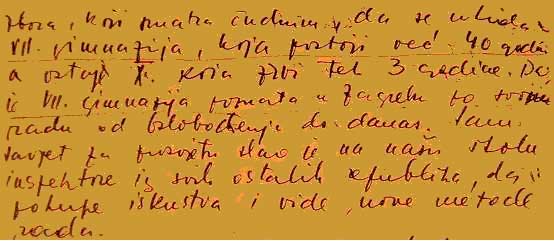 zbora, koji smatra čudnim, da se ukida
VII. gimnazija, koja postoji već 40 godina
a ostaje X. koja živi tek 3 godine. Da
je VII. gimnazija poznata u Zagrebu po svom
radu od oslobođenja do danas. Sam
savjet za prosvjetu slao je na našu školu
inspektore iz svih ostalih republika, da
pokupe iskustva i vide nove metode
rada.